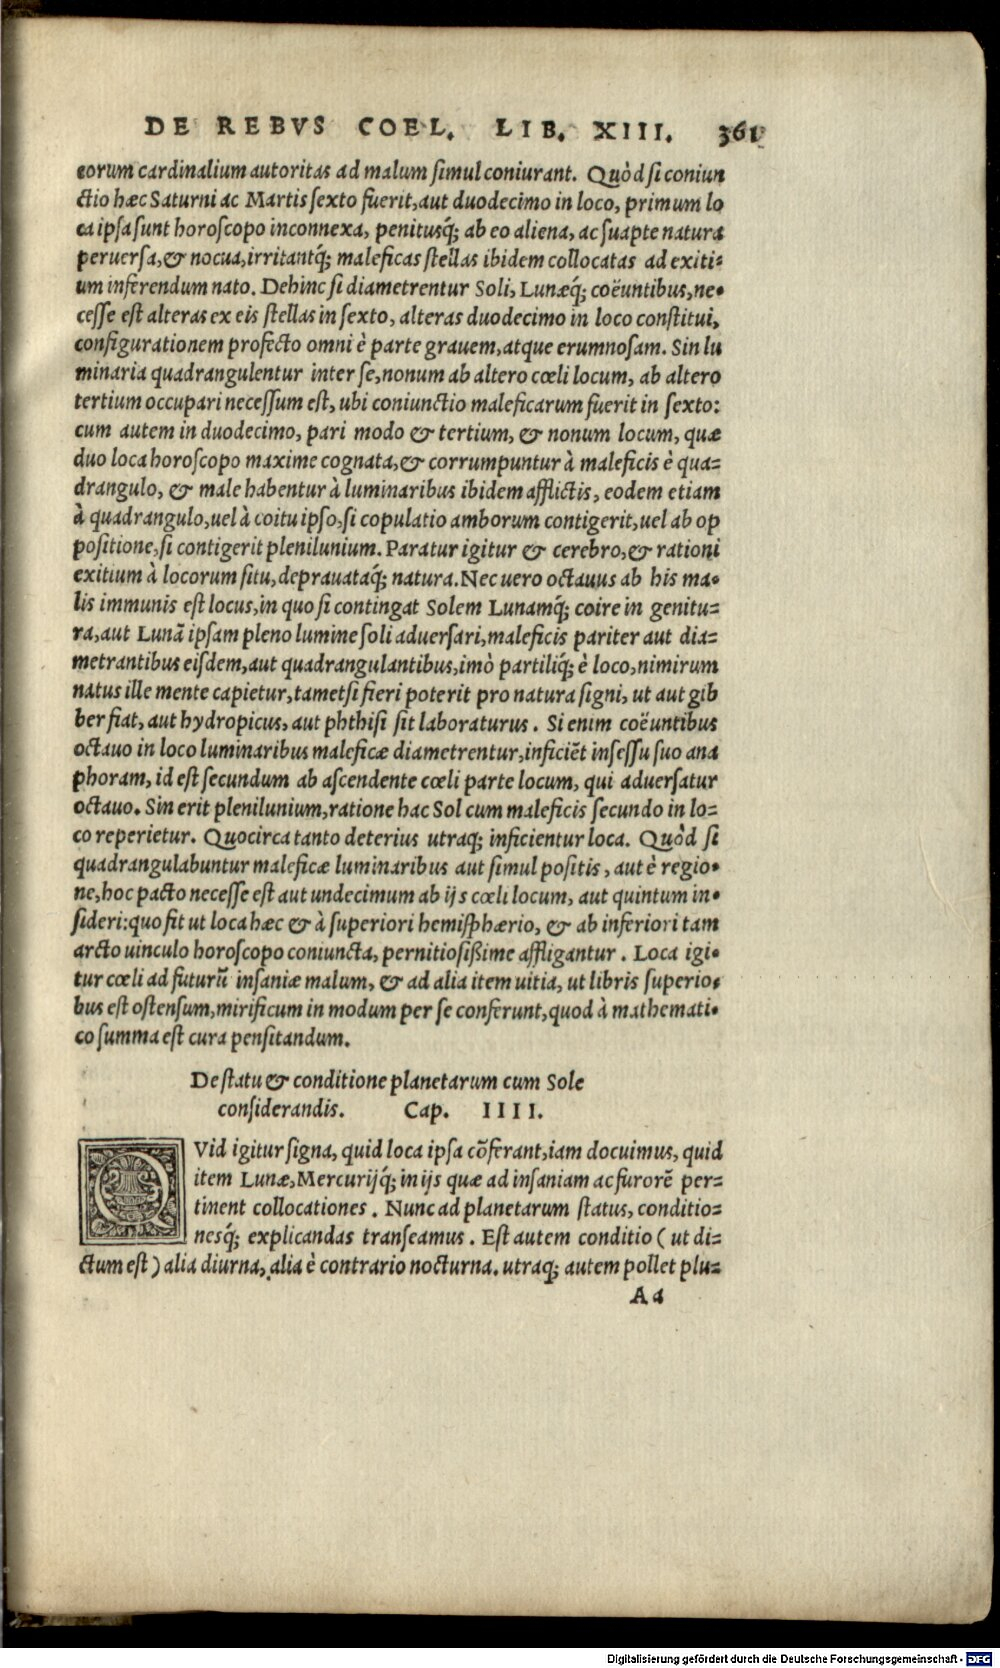 DE REBVS COEL. LIB. XIII. 361
eorum cardinalium autoritas ad malum simul coniurant. Quòd si coniun
ctio hæc Saturni ac Martis sexto fuerit, aut duodecimo in loco, primum lo
ca ipsa sunt horoscopo inconnexa, penitusq́; ab eo aliena, ac suapte natura
peruersa, & nocua, irritantq́; maleficas stellas ibidem collocatas ad exiti-
um inferendum nato. Dehinc si diametrentur Soli, Lunæq́; coëuntibus, ne-
cesse est alteras ex eis stellas in sexto, alteras duodecimo in loco constitui,
configurationem profecto omni è parte grauem, atque erumnosam. Sin lu
minaria quadrangulentur inter se, nonum ab altero cœli locum, ab altero
tertium occupari necessum est, ubi coniunctio maleficarum fuerit in sexto:
cum autem in duodecimo, pari modo & tertium, & nonum locum, quæ
duo loca horoscopo maxime cognata, & corrumpuntur à maleficis è qua-
drangulo, & male habentur à luminaribus ibidem afflictis, eodem etiam
à quadrangulo, uel à coitu ipso, si copulatio amborum contigerit, uel ab op
positione, si contigerit plenilunium. Paratur igitur & cerebro, & rationi
exitium à locorum situ, deprauataq́; natura. Nec uero octauus ab his ma-
lis immunis est locus, in quo si contingat Solem Lunamq́; coire in genitu-
ra, aut Lunā ipsam pleno lumine soli aduersari, maleficis pariter aut dia-
metrantibus eisdem, aut quadrangulantibus, imò partiliq́; è loco, nimirum
natus ille mente capietur, tametsi fieri poterit pro natura signi, ut aut gib
ber fiat, aut hydropicus, aut phthisi sit laboraturus. Si enim coëuntibus
octauo in loco luminaribus maleficæ diametrentur, inficiēt insessu suo ana
phoram, id est secundum ab ascendente cœli parte locum, qui aduersatur
octauo. Sin erit plenilunium, ratione hac Sol cum maleficis secundo in lo-
co reperietur. Quocirca tanto deterius utraq; inficientur loca. Quòd si
quadrangulabuntur maleficæ luminaribus aut simul positis, aut è regio-
ne, hoc pacto necesse est aut undecimum ab ijs cœli locum, aut quintum in-
sideri: quo fit ut loca hæc & à superiori hemisphærio, & ab inferiori tam
arcto uinculo horoscopo coniuncta, pernitiosißime affligantur. Loca igi-
tur cœli ad futurū insaniæ malum, & ad alia item uitia, ut libris superio-
bus est ostensum, mirificum in modum per se conferunt, quod à mathemati-
co summa est cura pensitandum.
De statu & conditione planetarum cum Sole
considerandis. Cap. IIII.
QVid igitur signa, quid loca ipsa cōferant, iam docuimus, quid
item Lunæ, Mercurijq́; in ijs quæ ad insaniam ac furorē per-
tinent collocationes. Nunc ad planetarum status, conditio-
nesq́; explicandas transeamus. Est autem conditio (ut di-
ctum est) alia diurna, alia è contrario nocturna. utraq; autem pollet plu-
Aa
Digitalisierung gefördert durch die Deutsche Forschungsgemeinschaft - DFG